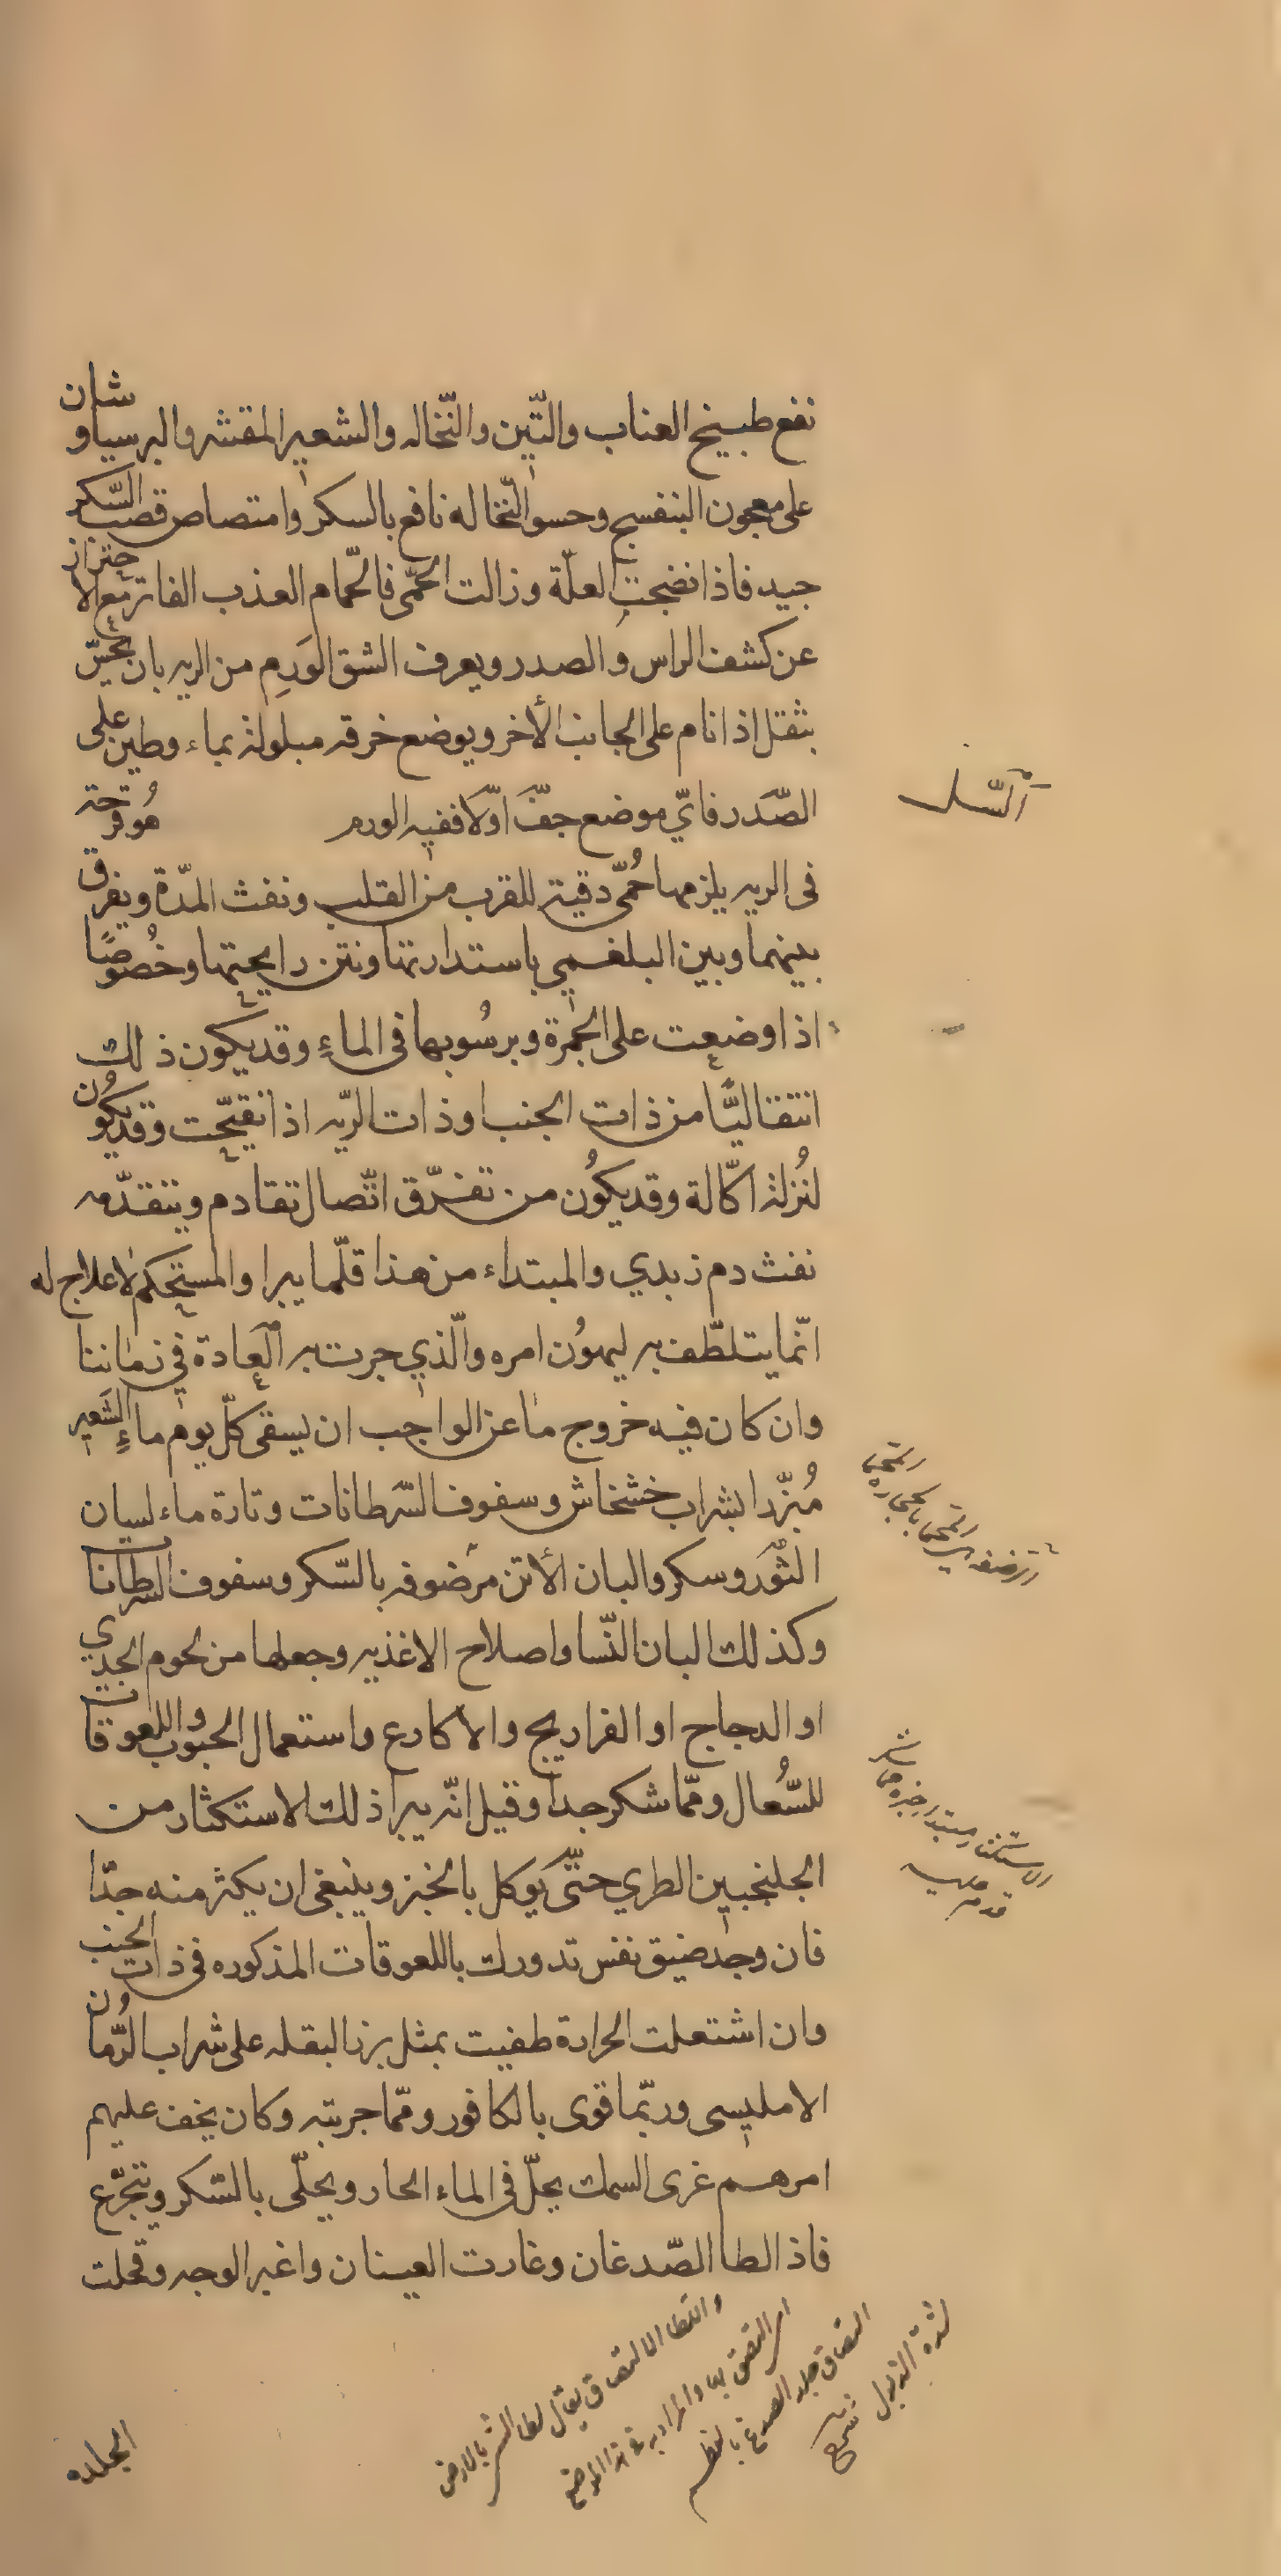 نفع طبيخ العناب والتّين والنّخاله والشعير المقشر والبرسياوشان
على معجون البنفسج وحسو النّخاله نافع بالسكر وامتصاص قصب السّكر
جيد فاذا نضجت العلّة وزالت الحمّى فالحمّام العذب الفاتر مع الاحتراز
عن كشف الراس والصدر ويعرف الشق الوَرِم من الريه بان يحسّ
بثقل اذا نام على الجانب الأخر ويوضع خرقه مبلولة بماء وطين على
الصّدر فايّ موضع جفّ اوّلا ففيه الورم هُو قرحة
فى الريه يلزمها حُمّى دقية للقرب من القلب ونفث المدّة ويفرق
بينهما وبين البلغمي باستدارتها ونتن رايحتها وخُصوصًا
اذا وضعت على الجمرة وبرسُوبها فى الماءِ وقد يكون ذلك
انتقاليًّا من ذات الجنب او ذات الرّيه اذا تقيّحت وقد يكُون
لنُزلة اكّالة وقد يكُون من تفرّق اتّصال تقادم ويتقدّمه
نفث دم زبدي والمبتداء من هذا قلّما يبرا والمستحكم لا علاج له
انّما يتلطّف به ليهوُن امره والّذي جرت به العادة في زماننا
وان كان فيه خروج ما عن الواجب ان يسقى كلّ يوم ماءِ الشّعير
مُبرّدا بشراب خشخاش وسفوف السّرطانات وتارة ماء لسان
الثّوَر وسكر والبان الأتن مرضوفه بالسّكر وسفوف السرطانات
وكذلك البان النّسا واصلاح الاغذيه وجعلها من لحوم الجدي
او الدجاج او الفراريج والاكارع واستعمال الحبوب واللعوقات
للسُّعال وممّا شكر جدا وقيل انّه يبرا ذلك الاستكثار من
الجلنجبين الطري حتّى يوكل بالخبز وينبغى ان يكثر منه جدّا
فان وجد ضيق نفس تدورك باللعوقات المذكوره فى ذات الجنب
وان اشتعلت الحرارة طفيت بمثل بزر البقله على شراب الرُّمان
الامليسى وربّما قوى بالكافور وممّا جربته وكان يخف عليهم
امرهم غرى السمك يحلّ فى الماء الحار ويحلّى بالسّكر ويتجرّع
فاذا لطا الصّدغان وغارت العينان واغبر الوجه وقحلت
السّل
والتطا الالتصاق يقال لطا الشى بالارض
اى التصق بها والمراد به فى هذا الموضع
التصاق جلد الصدغ بالعظم
لشدة الذبول
الجلده